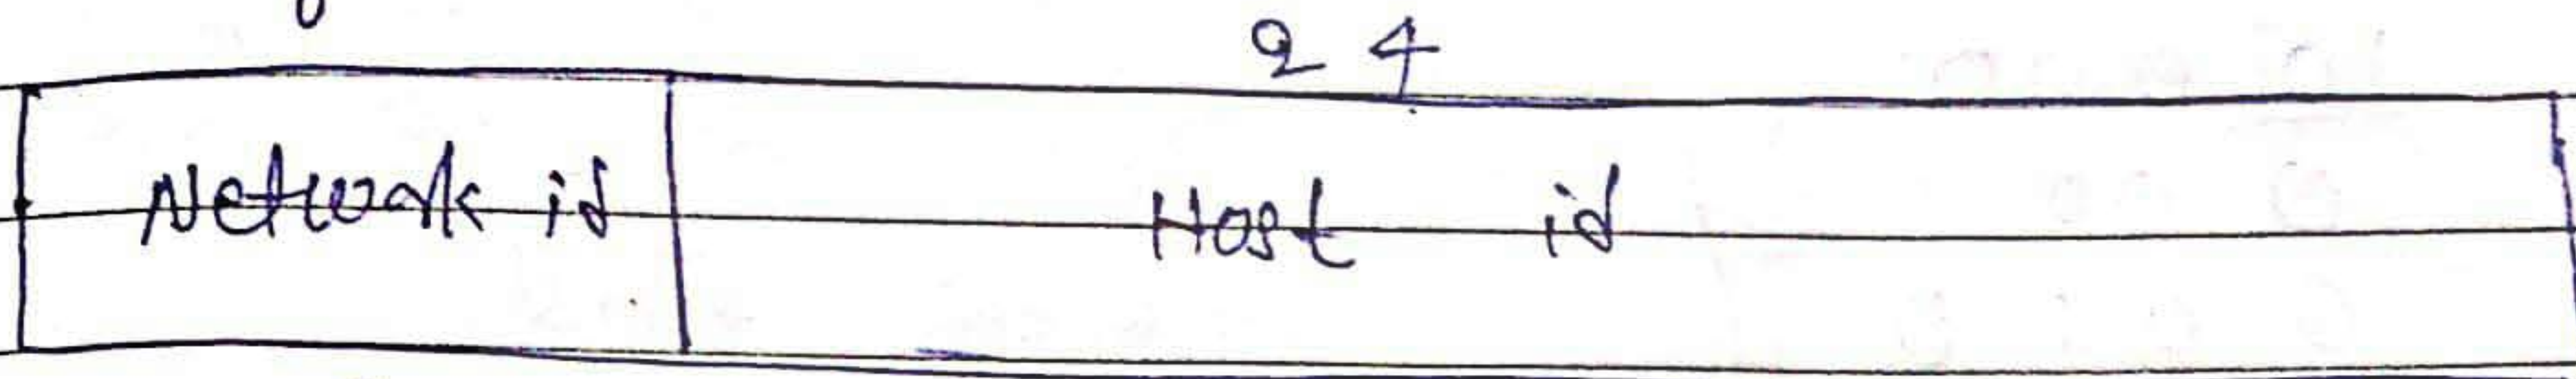 24
Network id Host id